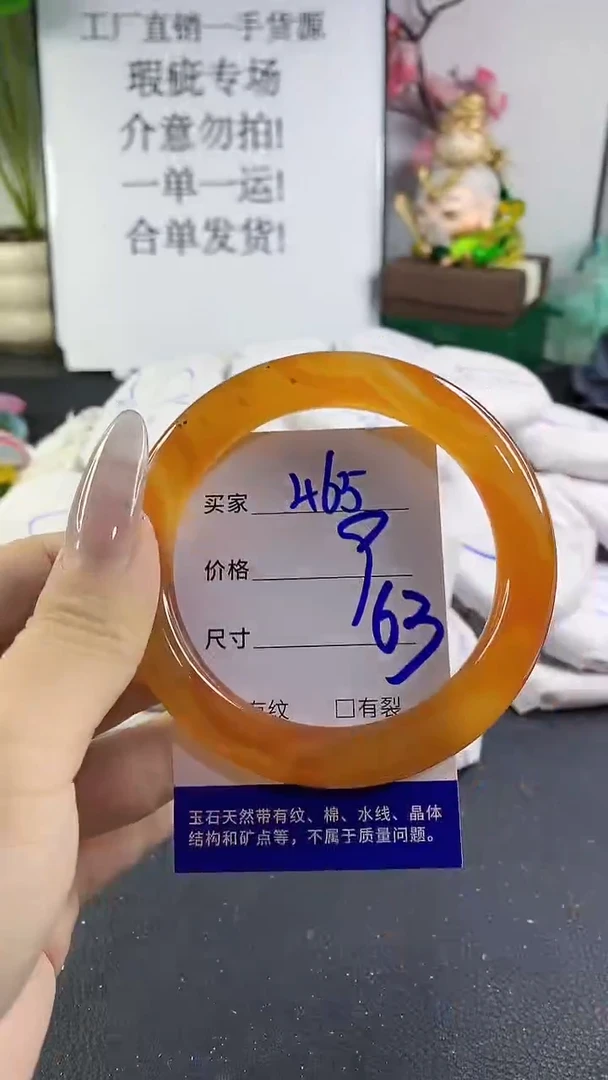 工厂直销一手货源
瑕疵专场
介意勿拍!
一单一运!
合单发货!
买家 465
价格 9
尺寸 63
有纹 □有裂
玉石天然带有纹、棉、水线、晶体
结构和矿点等，不属于质量问题。